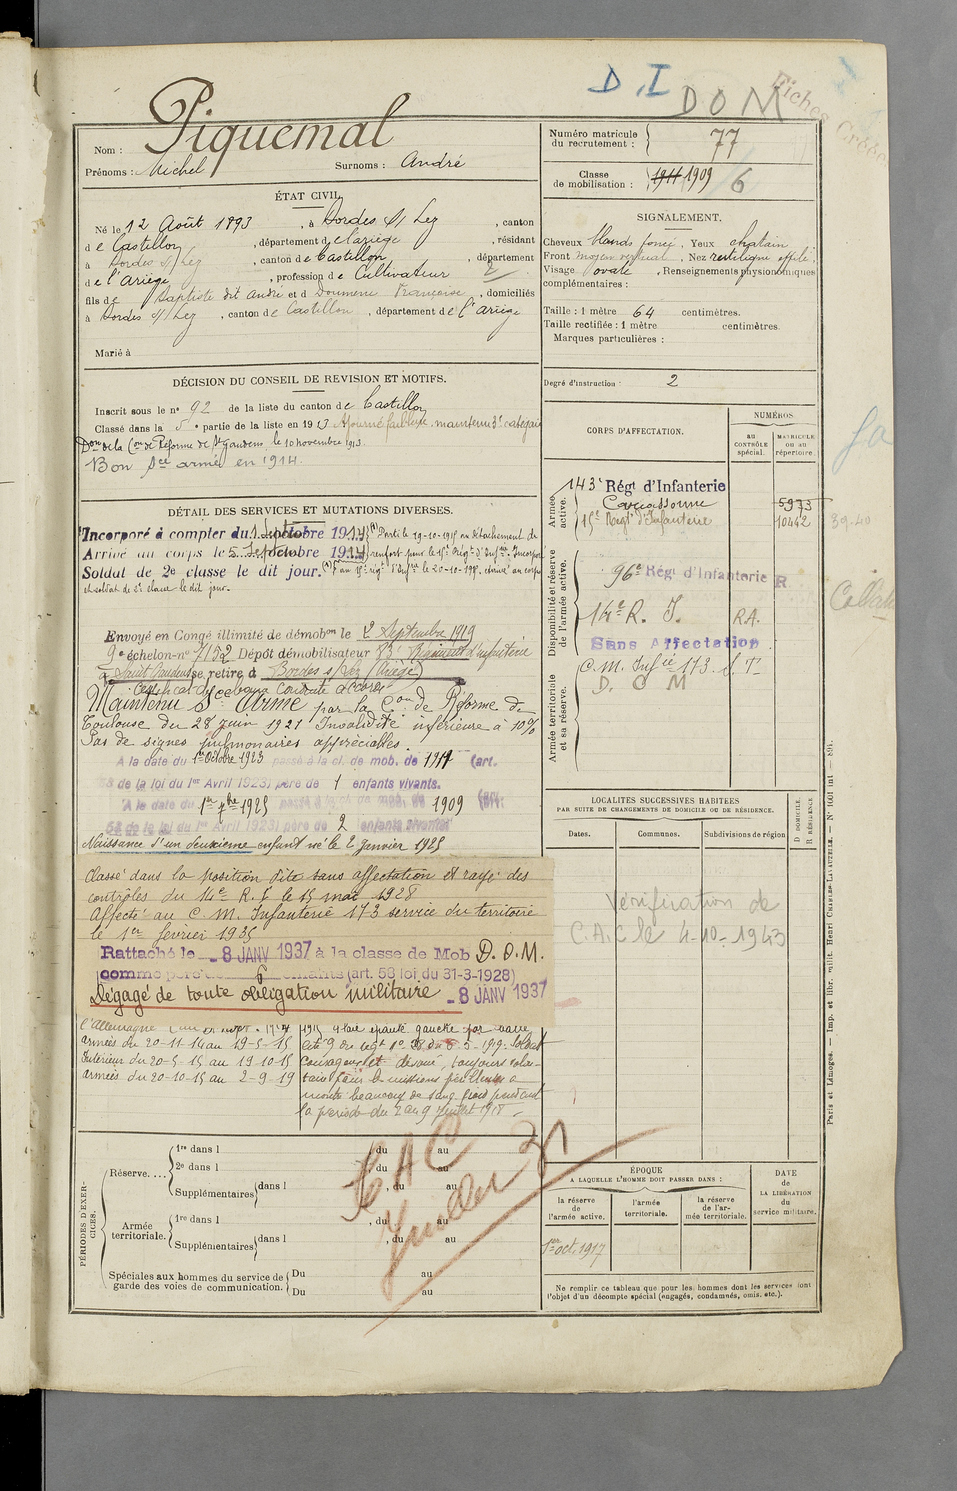 D.I DOM
Fiches Créées
Nom : Piquemal
Prénoms : Michel Surnoms : André
ÉTAT CIVIL.
Né le 12 Août 1893, à Bordes s/ Lez, canton
de Castillon, département de l'ariège, résidant
à Bordes s/ Lez, canton de Castillon, département
de l'Ariège, profession de Cultivateur
fils de Baptiste dit André et d Doumenc Françoise, domiciliés
à Bordes s/ Lez, canton de Castillon, département de l'Ariège
Marié à
DÉCISION DU CONSEIL DE REVISION ET MOTIFS.
Inscrit sous le n° 92 de la liste du canton de Castillon
Classé dans la 5e partie de la liste en 1913 Ajourné faiblesse. maintenu 3e catégorie
Don de la Con de Réforme de St Gaudens le 10 novembre 1913.
Bon Sce armé en 1914.
DÉTAIL DES SERVICES ET MUTATIONS DIVERSES.
Incorporé à compter du 1 octobre 1914 (1) Parti le 19-10-1915 en détachement de
Arrivé au corps le 5 octobre 1914 renfort pour le 15e Régt d'Infie. Incorporé
Soldat de 2e classe le dit jour. (1) au 15e régt d'Infie le 20-10-1915. arrivé au corps
et soldat de 2e classe le dit jour.
Envoyé en Congé illimité de démobon le 2 Septembre 1919
9e échelon n° 7152 Dépôt démobilisateur 83e Régiment d'infanterie
à Saint Gaudens se retire à Bordes s/ Lez (Ariège)
Certificat de bonne Conduite accordé
Maintenu Sce Armé par la Con de Réforme de
Toulouse du 28 juin 1921 Invalidité inférieure à 10%
Pas de signes pulmonaires appréciables.
A la date du 1er Octobre 1923 passé à la cl. de mob. de 1911 (art.
58 de la loi du 1er Avril 1923) père de 1 enfants vivants.
A la date du 1er 7bre 1925 passé à la cl. de mob. de 1909 (art.
58 de la loi du 1er Avril 1923) père de 2 enfants vivants
Naissance d'un deuxième enfant né le 2 Janvier 1925
Classé dans la position dite sans affectation et rayé des
contrôles du 14e R.I. le 15 mai 1928
Affecté au C.M. Infanterie 173 service du territoire
le 1er février 1935
Rattaché le 8 JANV 1937 à la classe de Mob D.O.M.
comme père de 6 enfants (art. 58 loi du 31-3-1928)
Dégagé de toute obligation militaire 8 JANV 1937
armées du 20-11-14 au 19-5-15
Intérieur du 20-5-15 au 19-10-15
armées du 20-10-15 au 2-9-19
1915 plaie épaule gauche par balle
Soldat
courageux et dévoué, toujours volon-
taire pour les missions périlleuses a
montré beaucoup de sang froid pendant
la période du 2 au 9 Juillet 1918
PÉRIODES D'EXERCICES.
Réserve.... 1re dans l , du au
2e dans l , du au
Supplémentaires dans l , du au
, du au
Armée territoriale. 1re dans l
Supplémentaires dans l , du au
Spéciales aux hommes du service de garde des voies de communication. Du au
Du au
CAC
Numéro matricule du recrutement : 77
Classe de mobilisation : 1911 1909 /6
SIGNALEMENT.
Cheveux blonds foncé, Yeux chatain
Front moyen vertical, Nez rectiligne effilé
Visage ovale, Renseignements physionomiques
complémentaires :
Taille : 1 mètre 64 centimètres.
Taille rectifiée : 1 mètre centimètres.
Marques particulières :
Degré d'instruction : 2
CORPS D'AFFECTATION.
NUMÉROS
AU CONTRÔLE spécial.
MATRICULE ou au répertoire.
Armée active.
143e Régt d'Infanterie
Carcassonne 5973
15e Régt d'Infanterie 10442
39-40
Disponibilité et réserve de l'armée active.
96e Régt d'Infanterie R
14e R.I. RA.
Sans Affectation
Armée territoriale et sa réserve.
C.M. Infie 173 S.T.
D.O.M
LOCALITÉS SUCCESSIVES HABITÉES
PAR SUITE DE CHANGEMENTS DE DOMICILE OU DE RÉSIDENCE.
Dates. Communes. Subdivisions de région D DOMICILE. R RÉSIDENCE
Vérification de
C.A.C le 4-10-1943
ÉPOQUE
A LAQUELLE L'HOMME DOIT PASSER DANS :
la réserve de l'armée active.
l'armée territoriale.
la réserve de l'armée territoriale.
DATE DE LA LIBÉRATION du service militaire.
1er oct. 1917
Ne remplir ce tableau que pour les hommes dont les services font
l'objet d'un décompte spécial (engagés, condamnés, omis, etc.).
Paris et Limoges. — Imp. et libr. milit. Henri CHARLES-LAVAUZELLE. — N° 1601 int — 891.